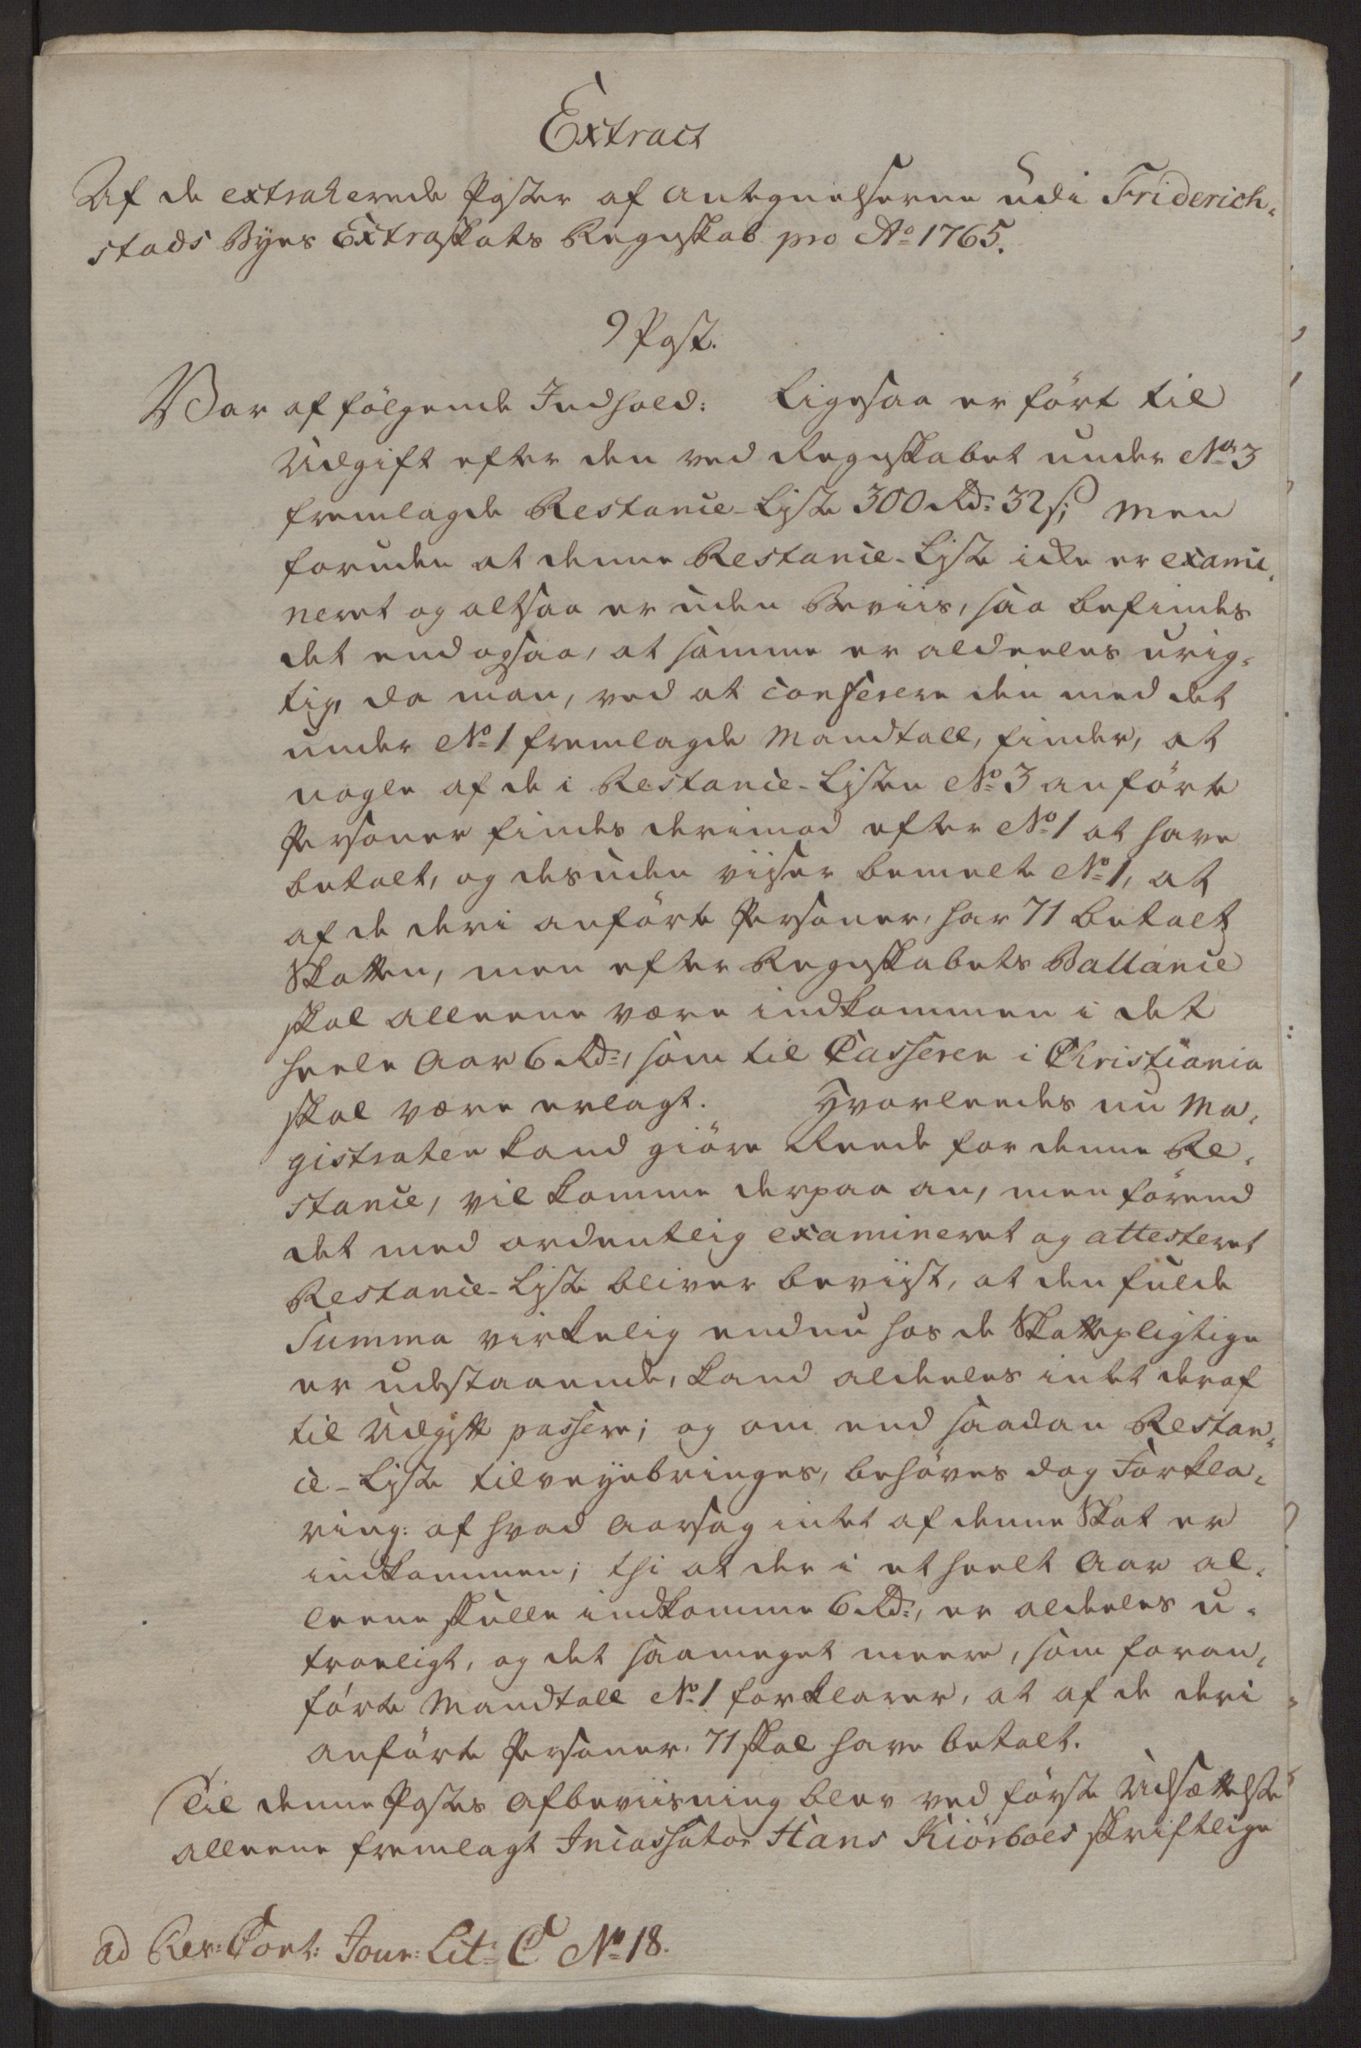 Extract
Af de extraherede Poster af Antegnelserne udi Friderich-
stads Byes Extraskats Regnskab pro Ao 1765.
9 Post.
Var af følgende Indhold: Ligesaa er ført til
Udgift efter den ved Regnskabet under No 3
fremlagde Restance-Liste 300 Rd: 32 s; men
foruden at denne Restance-Liste icke er exami-
neret og altsaa er uden Beviis, saa befindes
det endogsaa, at samme er aldeeles urig-
tig, da man, ved at conferere den med det
under No 1 fremlagde Mandtall, finder, at
nogle af de i Restance-Listen No 3 anførte
Personer findes derimod efter No 1 at have
betalt, og desuden viser bemelte No 1, at
af de deri anførte Personer, har 71 betalt
Skatten, men efter Regnskabets Ballance
skal alleene være indkommen i det
heele Aar 6 Rd:, som til Casseren i Christiania
skal være erlagt. Hvorleedes nu Ma-
gistraten kand giøre Reede for denne Re-
stance, vil komme derpaa an, men førend
det med ordentlig examineret og attesteret
Restance-Liste bliver beviist, at den fulde
Summa virkelig endnu hos de Skattepligtige
er udestaaende, kand aldeeles intet deraf
til Udgift passere; og om end saadan Restan-
ce-Liste tilveyebringes, behøves dog Forkla-
ring: af hvad Aarsag intet af denne Skat er
indkommen; thi at der i et heelt Aar al-
leene skulle indkomme 6 Rd:, er aldeeles u-
troeligt, og det saameget meere, som foran-
førte Mandtall No 1 forklarer, at af de deri
anførte Personer, 71 skal have betalt.
Til denne Postes Afbeviisning blev ved første Udsættelse
alleene fremlagt Incassator Hans Kiörboes skriftlige
ad Rev: Cont: Jour: Lit: C No 18.